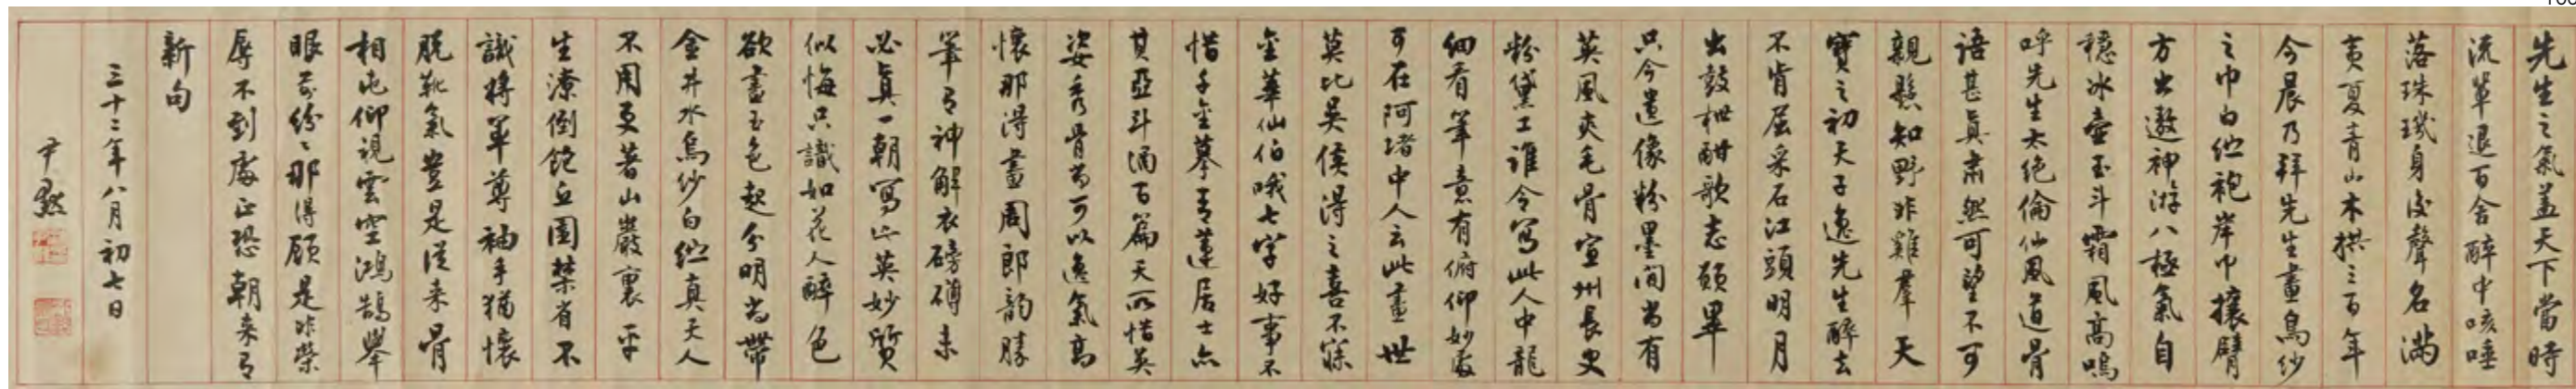 先生之氣蓋天下當時
流輩退百舍醉中咳唾
落珠璣身後聲名滿
夷夏青山木拱三百年
今晨乃拜先生畫烏紗
之巾白紵袍岸巾攘臂
方出遨神游八極氣自
穩冰壺玉斗霜風高嗚
呼先生太絕倫仙風道骨
語甚真肅然可望不可
親懸知野非雞羣天
寶之初天子逸先生醉去
不肯屈采石江頭明月
出鼓枻酣歌志願畢
只今遺像粉墨間尚有
英風爽毛骨宣州長史
粉黛工誰令寫此人中龍
細看筆意有俯仰妙處
可在阿堵中人云此畫世
莫比吳侯得之喜不寐
金華仙伯哦七字好事不
惜千金摹青蓮居士亦
其亞斗酒百篇天所惜英
姿秀骨尚可以逸氣高
懷那得畫周郎韵勝
筆有神解衣磅礴未
必真一朝寫此英妙質
似悔只識如花人醉色
欲盡玉色起分明尚帶
金井水烏紗白紵真天人
不用更著山巖裏平
生潦倒飽丘園禁省不
識將軍尊袖手猶懷
脫靴氣豈是從來骨
相屯仰視雲空鴻鵠舉
眼前紛紛那得顧是非榮
辱不到處正恐朝來有
新句
三十二年八月初七日
尹默